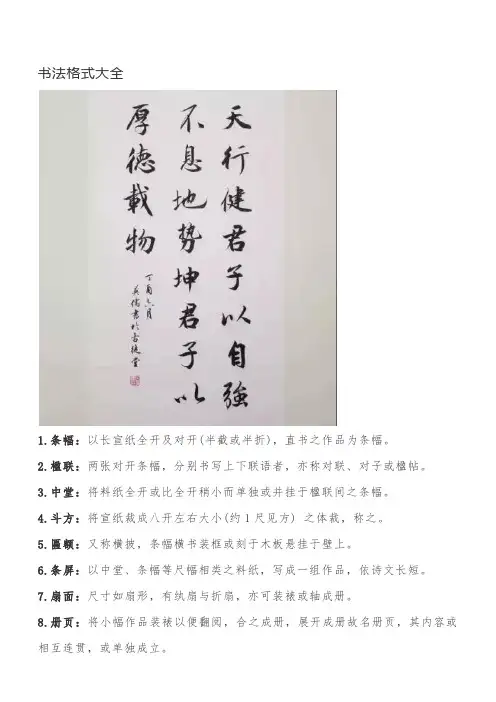 书法格式大全
天行健君子以自強
不息地势坤君子以
厚德載物
丁酉六月
1.条幅：以长宣纸全开及对开(半截或半折)，直书之作品为条幅。
2.楹联：两张对开条幅，分别书写上下联语者，亦称对联、对子或楹帖。
3.中堂：将料纸全开或比全开稍小而单独或并挂于楹联间之条幅。
4.斗方：将宣纸裁成八开左右大小(约1尺见方) 之体裁，称之。
5.匾额：又称横披，条幅横书装框或刻于木板悬挂于壁上。
6.条屏：以中堂、条幅等尺幅相类之料纸，写成一组作品，依诗文长短。
7.扇面：尺寸如扇形，有纨扇与折扇，亦可装裱或轴成册。
8.册页：将小幅作品装裱以便翻阅，合之成册，展开成册故名册页，其内容或
相互连贯，或单独成立。